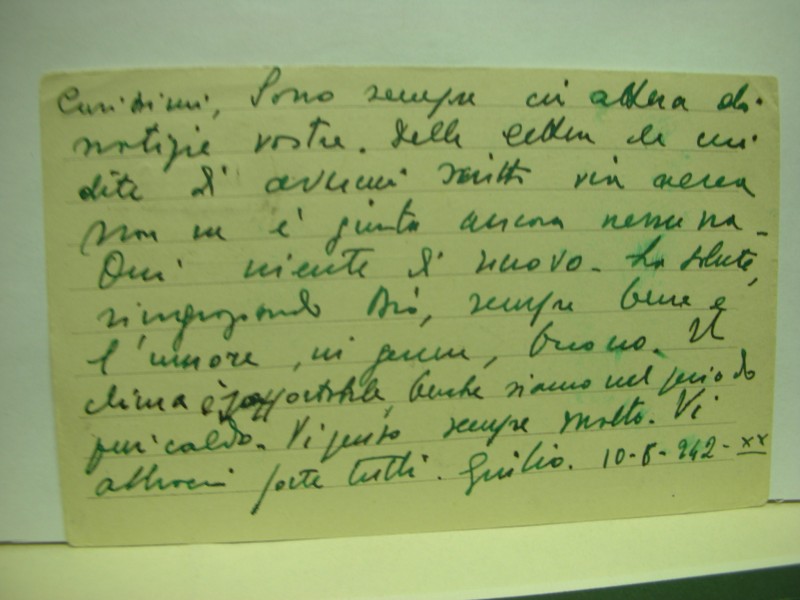 Carissimi, Sono sempre in attesa di
notizie vostre. Delle lettere che mi
dite di avermi scritto via aerea
non me è giunta ancora nessuna.
Qui niente di nuovo. La salute,
ringraziando Dio, sempre bene e
l'umore, in genere, buono. Il
clima è sopportabile, benchè siamo nel periodo
più caldo. Vi penso sempre molto. Vi
abbracci forte tutti. Giulio. 10-8-942-XX